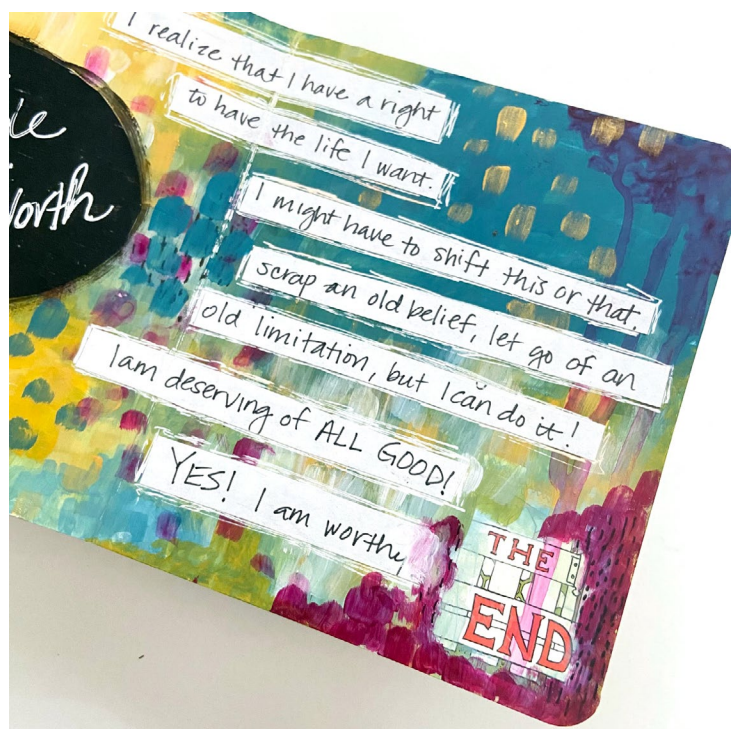 I realize that I have a right
to have the life I want.
I might have to shift this or that,
scrap an old belief, let go of an
old limitation, but I can do it!
I am deserving of ALL GOOD!
YES! I am worthy
THE
END